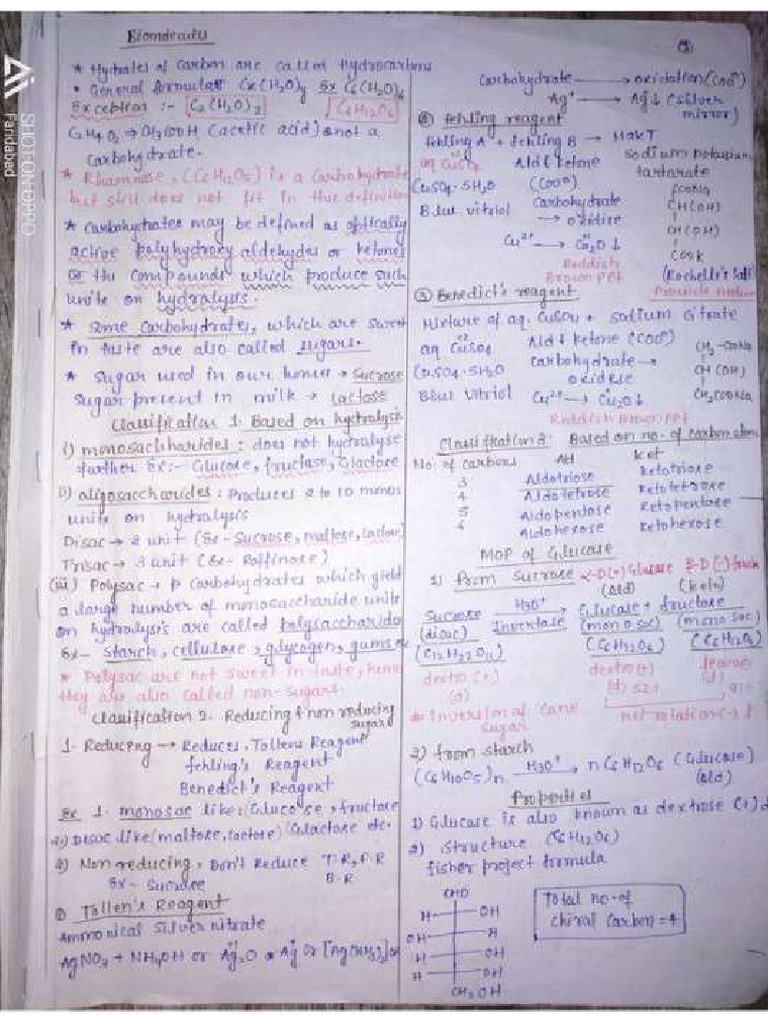 Biomolecules
* Hydrates of carbon are called hydrocarbons
• General formula Cx(H2O)y Ex C6(H2O)6
Exception :- C2(H2O)2 C6H12O6
C2H4O2 → CH3COOH (acetic acid) & not a
carbohydrate.
* Rhamnose, (C6H12O5) is a carbohydrate
but still does not fit in this definition
* Carbohydrates may be defined as optically
active polyhydroxy aldehydes or ketones
or the compounds which produce such
units on hydrolysis.
* Some carbohydrates, which are sweet
in taste are also called sugars.
* Sugar used in our homes → Sucrose
Sugar present in milk → Lactose
Classification 1. Based on hydrolysis
i) monosaccharides : does not hydrolyse
further Ex:- Glucose, fructose, Glactose
ii) oligosaccharides : Produces 2 to 10 monos
units on hydrolysis
Disac → 2 unit (Ex- Sucrose, maltose, lactose)
Trisac → 3 unit (Ex- Raffinose)
(iii) Polysac → P Carbohydrates which yield
a large number of monosaccharide units
on hydrolysis are called polysaccharides
Ex- Starch, cellulose, glycogen, gums
* Polysac are not sweet in taste, hence
they are also called non-sugars.
Classification 2. Reducing & non reducing
sugar
1. Reducing → Reduces, Tollens Reagent
fehling's Reagent
Benedict's Reagent
Ex 1. monosac like: (Glucose, fructose
Galactose etc.
2) Disac like (maltose, lactose)
2) Non reducing, Don't Reduce T.R, F.R
B.R
Ex- Sucrose
① Tollen's Reagent
Ammonical Silver nitrate
AgNO3 + NH4OH or Ag2O or Ag+ or [Ag(NH3)2]
Carbohydrate → oxidation (COO⁻)
Ag+ → Ag↓ (silver
mirror)
② fehling reagent
fehling A + fehling B → NaKT
aq CuSO4 Ald & ketone Sodium potassium
tartarate
CuSO4·5H2O (COO⁻) COONa
Blue vitriol Carbohydrate CH(OH)
→ oxidise CH(OH)
Cu2+ → Cu2O ↓ COOK
Reddish
Brown PPt (Rochelle's Salt)
③ Benedict's reagent
Mixture of aq. CuSO4 + sodium citrate
aq CuSO4 Ald & ketone (COO⁻) CH2-COONa
CuSO4·5H2O carbohydrate → CH(OH)
oxidise
Blue Vitriol Cu2+ → Cu2O↓ CH2COONa
Reddish Brown PPt
Classification 3: Based on no. of carbon atoms
No. of carbons Ald Ket
3 Aldotriose Ketotriose
4 Aldotetrose Ketotetrose
5 Aldopentose Ketopentose
6 Aldohexose Ketohexose
MOP of Glucose
1) From Sucrose α-D(+) Glucose β-D(-) fruct
(Ald) (keto)
Sucrose H3O+ → Glucose + fructose
(disac) Invertase (monosac) (monosac)
(C12H22O11) (C6H12O6) (C6H12O6)
dextro (+) dextro (+)
(d) (d) 52.5
* Inversion of cane
sugar
net rotation (-)
2) from starch
(C6H10O5)n H3O+ → nC6H12O6 (Glucose)
(ald)
Properties
1) Glucose is also known as dextrose (+) d
2) Structure (C6H12O6)
fisher project formula
CHO
H OH
OH H
H OH
H OH
CH2OH
Total no. of
chiral Carbon = 4
SHOT ON OPPO
Faridabad